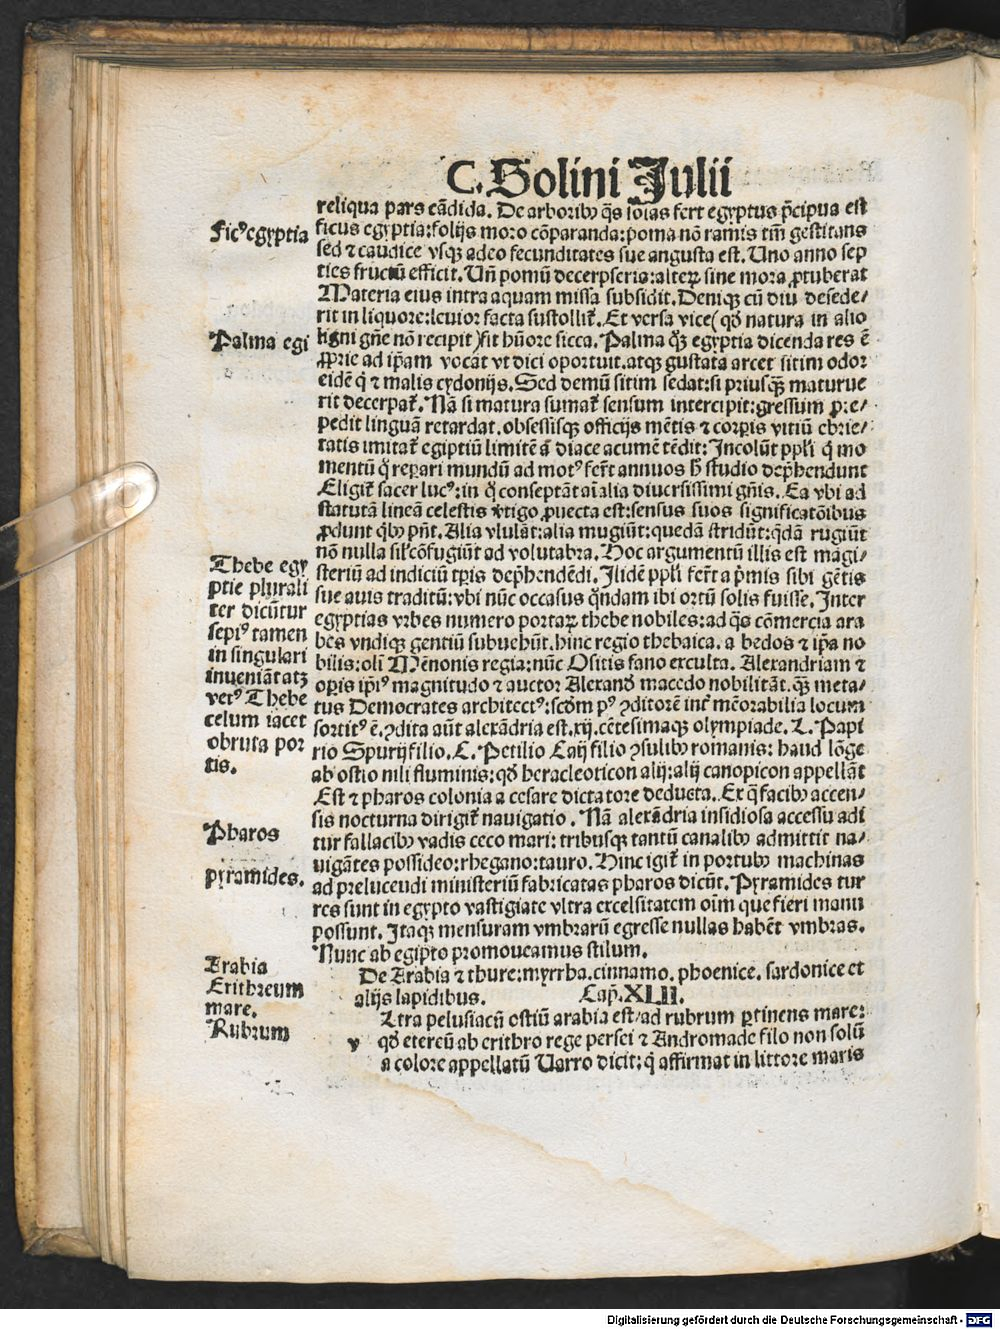 C. Solini Julii
reliqua pars cādida. De arboribꝰ q̄s solas fert egyptus p̄cipua est
Fic⁹ egyptia
ficus egyptia: folijs moro cōparanda: poma nō ramis tm̄ gestitans
sed ⁊ caudice vsq̢ adeo fecunditates sue angusta est. Uno anno sep
ties fructū efficit. Un̄ pomū decerpseris: alterꝝ sine mora ꝓtuberat
Materia eius intra aquam missa subsidit. Deniq̢ cū diu desede/
rit in liquore: leuior facta sustollit᷑. Et versa vice (qd̄ natura in alio
Palma egi
ligni gn̄e nō recipit) fit hūore sicca. Palma q̄q̢ egyptia dicenda res ē
ꝓprie ad ip̄am vocāt vt dici oportuit. atq̢ gustata arcet sitim odor
eidē q̄ ⁊ malis cydonijs. Sed demū sitim sedat: si priusq̄ maturue
rit decerpat᷑. Nā si matura sumat᷑ sensum intercipit: gressum p̄: e/
pedit linguā retardat. obsessisq̢ officijs mētis ⁊ corpis vitiū ebrie/
tatis imitat᷑ egiptiū limitē ā diace acumē tēdit: Incolūt ppl̄i q̄ mo
mentū q̄ reparari mundū ad mot⁹ fert᷑ annuos h̄ studio dep̄hendunt
Eligit᷑ sacer luc⁹: in q̄ conseptāt aīalia diuersissimi gn̄is. Ea vbi ad
statutā lineā celestis v̄tigo ꝓuecta est: sensus suos significatōibus
ꝓdunt q̄bꝰ pn̄t. Alia vlulāt: alia mugiūt: quedā stridūt: q̄dā rugiūt
nō nulla sil̄ cōfugiūt ad volutabra. Hoc argumentū illis est magi/
Thebe egy
steriū ad indiciū tp̄is dep̄hendēdi. Ilidē ppl̄i fert᷑ a p̄mis sibi gētis
ptie plurali
sue auis traditū: vbi nūc occasus q̄ndam ibi ortū solis fuisse. Inter
ter dicūtur
egyptias vrbes numero portaꝝ thebe nobiles: ad q̄s cōmercia ara
sepi⁹ tamen
bes vndiq̢ gentiū subuehūt. hinc regio thebaica. a bedos ⁊ ip̄a no
in singulari
bilis: oli̅ Mēnonis regia: nūc Ositis fano exculta. Alexandriam ⁊
inueniāt atꝫ
opis ip̄i⁹ magnitudo ⁊ auctor Alexand᷑ macedo nobilitāt. q̄ meta/
vet⁹ Thebe
tus Democrates architect⁹: scdm̄ p⁹ ꝯditorē int᷑ mēorabilia locum
celum iacet
sortit⁹ ē. ꝯdita aūt alexādria est. xij. cētesimaq̢ olympiade. L. Papi
obruta por
rio Spurij filio. C. Petilio Caij filio ꝯsulibꝰ romanis: haud lōge
tis.
ab ostio nili fluminis: qd̄ heracleoticon alij: alij canopicon appellāt
Est ⁊ pharos colonia a cesare dictatore deducta. Ex q̄ facibꝰ accen/
sis nocturna dirigit᷑ nauigatio. Nā alexādria insidiosa accessu adi
Pharos
tur fallacibꝰ vadis ceco mari: tribusq̢ tantū canalibꝰ admittit na/
vigātes possideo: rhegano: tauro. Hinc igit᷑ in portubꝰ machinas
pyramides.
ad prelucendi ministeriū fabricatas pharos dicūt. Pyramides tur
res sunt in egypto vastigiate vltra excelsitatem oīm que fieri manu
possunt. Itaq̢ mensuram vmbrarū egresse nullas habēt vmbras.
Nunc ab egipto promoueamus stilum.
Arabia
De Arabia ⁊ thure: myrrha. cinnamo. phoenice. sardonice et
Erithreum
alijs lapidibus. Cap̄. XLII.
mare.
Ltra pelusiacū ostiū arabia est/ ad rubrum ꝑtinens mare:
Rubrum
v qd̄ etereū ab erithro rege persei ⁊ Andromade filo non solū
a colore appellatū Uarro dicit: q̄ affirmat in littore maris
Digitalisierung gefördert durch die Deutsche Forschungsgemeinschaft - DFG